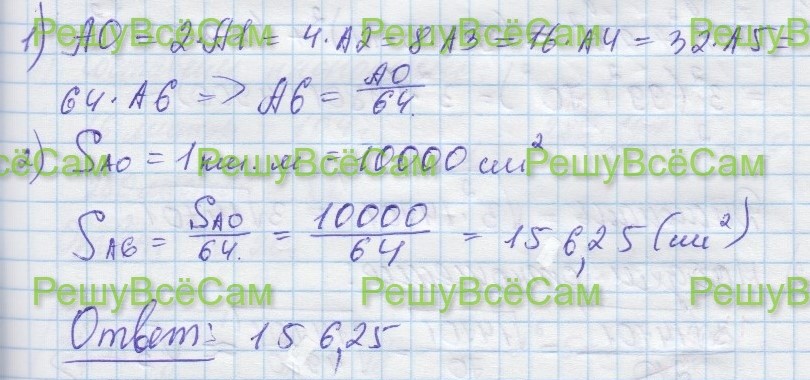 1) A0 = 2·A1 = 4·A2 = 8 A3 = 16·A4 = 32·A5 =
64·A6 => A6 = A0/64.
2) S_A0 = 1 кв. м = 10000 см²
S_A6 = S_A0/64. = 10000/64 = 156,25 (см²)
Ответ: 156,25
РешуВсёСам РешуВсёСам РешуВсёСам
РешуВсёСам РешуВсёСам РешуВсёСам
РешуВсёСам РешуВсёСам РешуВсёСам